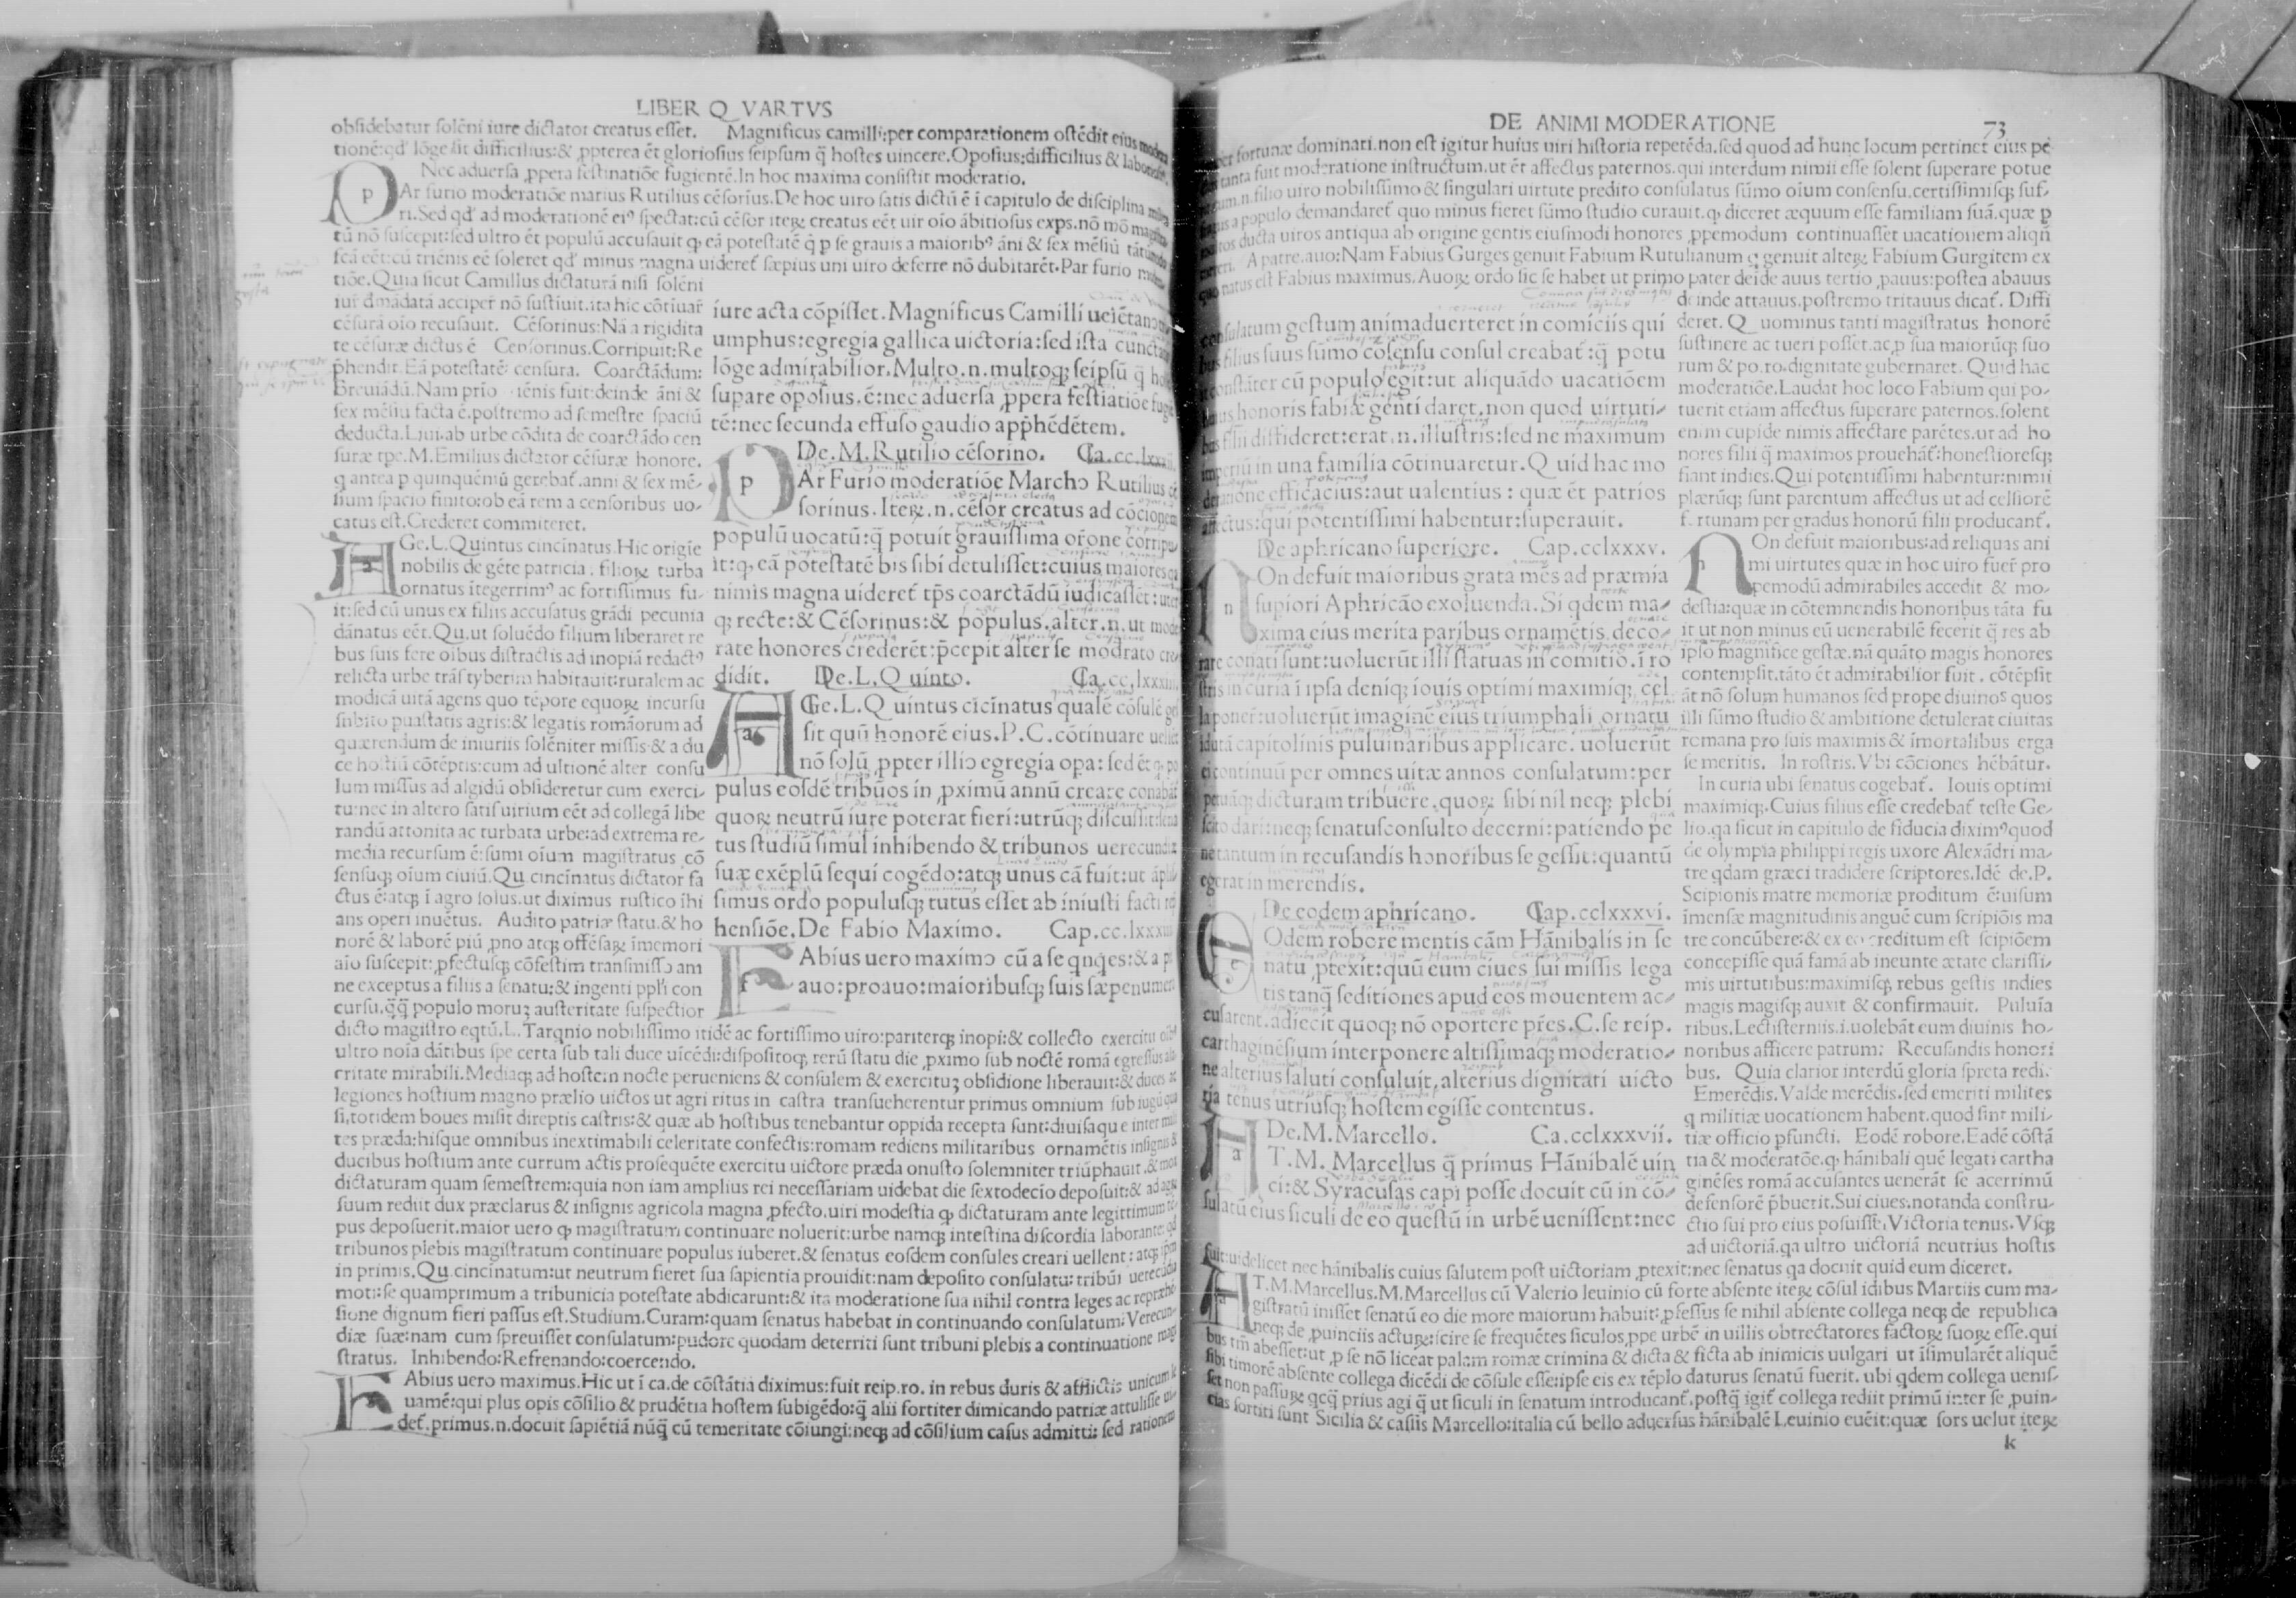 LIBER Q VARTVS
obsidebatur solēni iure dictator creatus esset. Magnificus camilli:per comparationem ostēdit eius
tionē:qd' lōge sit difficilius:& ꝓpterea ēt gloriosius seipsum q̄ hostes uincere.Oposius:difficilius &
Nec aduersa ꝓpera festinatiōe fugientē.In hoc maxima consistit moderatio.
PAr furio moderatiōe marius Rutilius cēsorius.De hoc uiro satis dictū ē ī capitulo de disciplina
ri.Sed qd' ad moderationē eiꝰ spectat:cū cēsor iteꝝ creatus eēt uir oīo ābitiosus exps.nō mō
tū nō suscepit:sed ultro ēt populū accusauit ꝙ eā potestatē q̄ p se grauis a maioribꝰ āni & sex mēsiū
scā eēt:cū triēnis eē soleret qd' minus magna uideret' sæpius uni uiro deferre nō dubitarēt.Par furio
tiōe.Quia sicut Camillus dictaturā nisi solēni
iur' dmādatā acciper' nō sustiuit.ita hic cōtiuar'
cēsurā oīo recusauit. Cēsorinus:Nā a rigidita
te cēsuræ dictus ē Censorinus.Corripuit:Re
p̄hendit.Eā potestatē: censura. Coarctādum:
Breuiādū.Nam prīo iēnis fuit:deinde āni &
sex mēsiū facta ē.postremo ad semestre spaciū
deducta.Liui.ab urbe cōdita de coarctādo cen
suræ tpe.M.Emilius dictator cēsuræ honorē.
q antea p quinquēniū gerebat'.anni & sex mē-
sium spacio finito:ob eā rem a censoribus uo-
catus est.Crederet committeret.
iure acta cōpisset.Magnificus Camilli
umphus:egregia gallica uictoria:sed ista
lōge admirabilior.Multo.n.multoqꝫ seipsū q̄
supare oposius.ē:nec aduersa ꝓpera festiatiōe
tē:nec secunda effuso gaudio app̄hēdētem.
De.M.Rutilio cēsorino. Ca.cc.
PAr Furio moderatiōe Marcho Rutilius
sorinus.Iteꝝ.n.cēsor creatus ad cōcionem
populū uocatū:q̄ potuit grauissima orōne corripu
it:ꝙ eā potestatē bis sibi detulisset:cuius maiores
nimis magna uideret' tp̄s coarctādū iudicasset:
qꝫ recte:& Cēsorinus:& populus.alter.n.ut mode
rate honores crederēt:p̄cepit alter se modrato
didit. De.L.Q uinto. Ca.cc.
AGe.L.Q uintus cīcīnatus qualē cōsulē
sit quū honorē eius.P.C.cōtinuare
nō solū ꝓpter illiꝯ egregia opa:sed ēt
pulus eosdē tribūos in ꝓximū annū creare
quoꝝ neutrū iure poterat fieri:utrūqꝫ discussit:
tus studiū simul inhibendo & tribunos
suæ exēplū sequi cogēdo:atqꝫ unus cā fuit:ut
simus ordo populusqꝫ tutus esset ab iniusti facti
hensiōe.De Fabio Maximo. Cap.cc.
FAbius uero maximo cū a se qnqes:& a
auo:proauo:maioribusqꝫ suis sæpenumero
AGe.L.Quintus cincīnatus.Hic origīe
nobilis de gēte patricia: filioꝝ turba
ornatus ītegerrimꝰ ac fortissimus fu-
it:sed cū unus ex filiis accusatus grādi pecunia
dānatus eēt.Qu.ut soluēdo filium liberaret re
bus suis fere oībus distractis ad inopiā redactꝰ
relicta urbe trās tyberim habitauit:ruralem ac
modicā uitā agens quo tēpore equoꝝ incursu
subito puastatis agris:& legatis romāorum ad
quærendum de iniuriis solēniter missis & a du
ce hostiū cōtēptis:cum ad ultionē alter consu
lum missus ad algidū obsideretur cum exerci-
tu:nec in altero satis uirium eēt ad collegā libe
randū attonita ac turbata urbe:ad extrema re-
media recursum ē:sumi oīum magistratus cō
sensuqꝫ oīum ciuiū.Qu cincīnatus dictator fa
ctus ē:atqꝫ ī agro solus.ut diximus rustico ihi
ans operi inuētus. Audito patriæ statu.& ho
norē & laborē piū ꝓno atqꝫ offēsaꝝ īmemori
aīo suscepit:ꝓfectusqꝫ cōfestim transmisso am
ne exceptus a filiis a senatu:& ingenti ppl'i con
cursu.q̄q̄ populo moruꝫ austeritate suspectior
dicto magistro eqtū.L.Tarqnio nobilissimo itidē ac fortissimo uiro:pariterqꝫ inopi:& collecto exercitu
ultro noīa dātibus spe certa sub tali duce uicēdi:dispositoqꝫ rerū statu die ꝓximo sub noctē romā egressus
critate mirabili.Mediaqꝫ ad hostem nocte perueniens & consulem & exercituꝫ obsidione liberauit:& duces ac
legiones hostium magno prælio uictos ut agri ritus in castra transueherentur primus omnium sub iugū
si,totidem boues misit direptis castris:& quæ ab hostibus tenebantur oppida recepta sunt:diuisaque inter
tes præda:hisque omnibus inextimabili celeritate confectis:romam rediens militaribus ornamētis insignis &
ducibus hostium ante currum actis prosequēte exercitu uictore præda onusto solemniter triūphauit.&
dictaturam quam semestrem:quia non iam amplius rei necessariam uidebat die sextodecīo deposuit:& ad
suum rediit dux præclarus & insignis agricola magna ꝓfecto.uiri modestia ꝙ dictaturam ante legittimum
pus deposuerit.maior uero ꝙ magistratum continuare noluerit:urbe namqꝫ intestina discordia laborante:
tribunos plebis magistratum continuare populus iuberet.& senatus eosdem consules creari uellent:atqꝫ
in primis.Qu cincīnatum:ut neutrum fieret sua sapientia prouidit:nam deposito consulatu:tribūi
moti:se quamprimum a tribunicia potestate abdicarunt:& ita moderatione sua nihil contra leges ac
sione dignum fieri passus est.Studium.Curam:quam senatus habebat in continuando consulatum:Verecun-
diæ suæ:nam cum spreuisset consulatum:pudore quodam deterriti sunt tribuni plebis a continuatione magi
stratus. Inhibendo:Refrenando:coercendo.
FAbius uero maximus.Hic ut ī ca.de cōstātia diximus:fuit reip.ro. in rebus duris & afflictis unicum
uamē:qui plus opis cōsilio & prudētia hostem subigēdo:q̄ alii fortiter dimicando patriæ attulisse
det'.primus.n.docuit sapiētiā nūq̄ cū temeritate cōiungi:neqꝫ ad cōsilium casus admitti: sed rationem
DE ANIMI MODERATIONE 73
fortunæ dominati.non est igitur huius uiri historia repetēda.sed quod ad hunc locum pertinet eius pe
tanta fuit moderatione instructum.ut ēt affectus paternos.qui interdum nimii esse solent superare potue
.n.filio uiro nobilissimo & singulari uirtute predito consulatus sūmo oīum consensu.certissimisqꝫ suf-
a populo demandaret' quo minus fieret sūmo studio curauit.ꝙ diceret æquum esse familiam suā.quæ p
ducta uiros antiqua ab origine gentis eiusmodi honores ꝓpemodum continuasset uacationem aliqn̄
A patre.auo:Nam Fabius Gurges genuit Fabium Rutulianum q genuit alteꝝ Fabium Gurgitem ex
quo natus est Fabius maximus.Auoꝝ ordo sic se habet ut primo pater deīde auus tertio ꝓauus:postea abauus
deinde attauus.postremo tritauus dicat'. Diffi
deret. Q uominus tanti magistratus honorē
sustinere ac tueri posset.ac p sua maiorūqꝫ suo
rum & po.ro.dignitate gubernaret. Quid hac
moderatiōe.Laudat hoc loco Fabium qui po-
tuerit etiam affectus superare paternos.solent
enim cupide nimis affectare parētes.ut ad ho
nores filii q̄ maximos prouehāt':honestioresqꝫ
fiant indies.Qui potentissimi habentur:nimii
plærūqꝫ sunt parentum affectus ut ad celsiorē
rtunam per gradus honorū filii producant'.
consulatum gestum animaduerteret in comiciis qui
filius suus sūmo cōsensu consul creabat':q̄ potu
cōstāter cū populo egit:ut aliquādo uacatiōem
honoris fabiæ gēnti daret.non quod uirtuti-
filii diffideret:erat.n.illustris:sed ne maximum
in una familia cōtinuaretur.Q uid hac mo
deratione efficacius:aut ualentius: quæ ēt patrios
affectus:qui potentissimi habentur:superauit.
De aphricano superiore. Cap.cclxxxv.
NOn defuit maioribus grata mēs ad præmia
supiori Aphricāo exoluenda.Si qdem ma-
xima eius merita paribus ornamētis deco-
rare conati sunt:uoluerūt illi statuas in comitio.ī ro
stris in curia ī ipsa deniqꝫ iouis optimi maximiqꝫ cel
la poner':uoluerūt imaginē eius triumphali ornatu
capitolinis puluinaribus applicare. uoluerūt
continuū per omnes uitæ annos consulatum:per
dictaturam tribuere.quoꝝ sibi nil neqꝫ plebi
scito dari:neqꝫ senatusconsulto decerni:patiendo pe
ne tantum in recusandis honoribus se gessit:quantū
egerat in merendis.
De eodem aphricano. Cap.cclxxxvi.
EOdem robore mentis cām Hānibalis in se
natu ꝓtexit:quū eum ciues sui missis lega
tis tanq̄ seditiones apud eos mouentem ac-
cusarent.adiecit quoqꝫ nō oportere pr̄es.C.se reip.
carthaginēsium interponere altissimaqꝫ moderatio-
ne alterius saluti consuluit.alterius dignitati uicto
ria tenus utriusqꝫ hostem egisse contentus.
De.M.Marcello. Ca.cclxxxvii.
AT.M. Marcellus q̄ primus Hānibalē uin
ci:& Syracusas capi posse docuit cū in cō-
sulatū eius siculi de eo questū in urbē uenissent:nec
NOn defuit maioribus:ad reliquas ani
mi uirtutes quæ in hoc uiro fuer' pro
pemodū admirabiles accedit & mo-
destia:quæ in cōtemnendis honoribus tāta fu
it ut non minus eū uenerabilē fecerit q̄ res ab
ipso magnifice gestæ.nā quāto magis honores
contempsit.tāto ēt admirabilior fuit. cōtēpsit
āt nō solum humanos sed prope diuinos quos
illi sūmo studio & ambitione detulerat ciuitas
romana pro suis maximis & imortalibus erga
se meritis. In rostris.Vbi cōciones hēbātur.
In curia ubi senatus cogebat'. Iouis optimi
maximiqꝫ.Cuius filius esse credebat' teste Ge-
lio.qa sicut in capitulo de fiducia diximꝰquod
de olympia philippi regis uxore Alexādri ma-
tre qdam græci tradidere scriptores.Idē de.P.
Scipionis matre memoriæ proditum ē:uisum
imensæ magnitudinis anguē cum scripiōis ma
tre concūbere:& ex eo creditum est scipiōem
concepisse quā famā ab ineunte ætate clarissi-
mis uirtutibus:maximisqꝫ rebus gestis indies
magis magisqꝫ auxit & confirmauit. Puluia
ribus.Lectisterniis.i.uolebāt eum diuinis ho-
noribus afficere patrum: Recusandis honori
bus. Quia clarior interdū gloria spreta redi.
Emerēdis.Valde merēdis.sed emeriti milites
q militiæ uocationem habent.quod sint mili-
tiæ officio pfuncti. Eodē robore.Eadē cōstā
tia & moderatōe.ꝙ hānibali quē legati cartha
ginēses romā accusantes uenerāt se acerrimū
defensorē p̄buerit.Sui ciues.notanda constru-
ctio sui pro eius posuisse.Victoria tenus.Vsqꝫ
ad uictoriā.qa ultro uictoriā neutrius hostis
fuit:uidelicet nec hānibalis cuius salutem post uictoriam ꝓtexit:nec senatus qa docuit quid eum diceret.
AT.M.Marcellus.M.Marcellus cū Valerio leuinio cū forte absente iteꝝ cōsul idibus Martiis cum ma-
gistratū inisset senatū eo die more maiorum habuit:ꝓfessus se nihil absente collega neqꝫ de republica
neqꝫ de ꝓuinciis actuꝝ:scire se frequētes siculos ꝓpe urbē in uillis obtrectatores factoꝝ suoꝝ esse.qui
bus tm̄ abesset:ut ꝓ se nō liceat palam romæ crimina & dicta & ficta ab inimicis uulgari ut īsimularēt aliquē
sibi timorē absente collega dicēdi de cōsule esse:ipse eis ex tēplo daturus senatū fuerit. ubi qdem collega uenis-
set non passuꝝ qcq̄ prius agi q̄ ut siculi in senatum introducant'.postq̄ igit' collega rediit primū inter se ꝓuin-
cias sortiti sunt Sicilia & casiis Marcello:italia cū bello aduersus hānibalē Leuinio euēit:quæ sors uelut iteꝝ
k